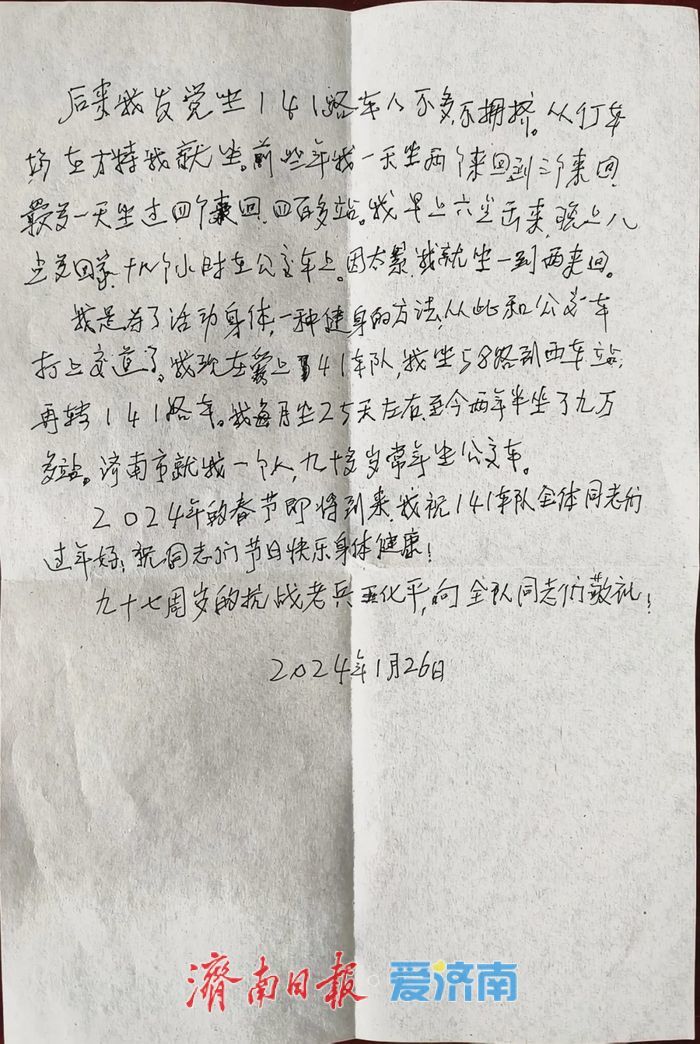 后来我发觉坐141路车人不多,不拥挤。从停车
场在方特我就坐。前些年我一天坐两个来回到三个来回,
最多一天坐过四个来回,四百多站。我早上六点出来,晚上八
点多回家,十几个小时在公交车上。因太累,我就坐一到两来回。
我是为了活动身体,一种健身的方法,从此和公交车
打上交道了。我现在爱上141车队,我坐58路到西车站,
再转141路车。我每月坐25天左右,至今两年半坐了九万
多站。济南市就我一个人,九十多岁常年坐公交车。
2024年的春节即将到来,我祝141车队全体同志们
过年好!祝同志们节日快乐身体健康!
九十七周岁的抗战老兵 化平,向全队同志们敬礼!
2024年1月26日
濟南日报 爱济南